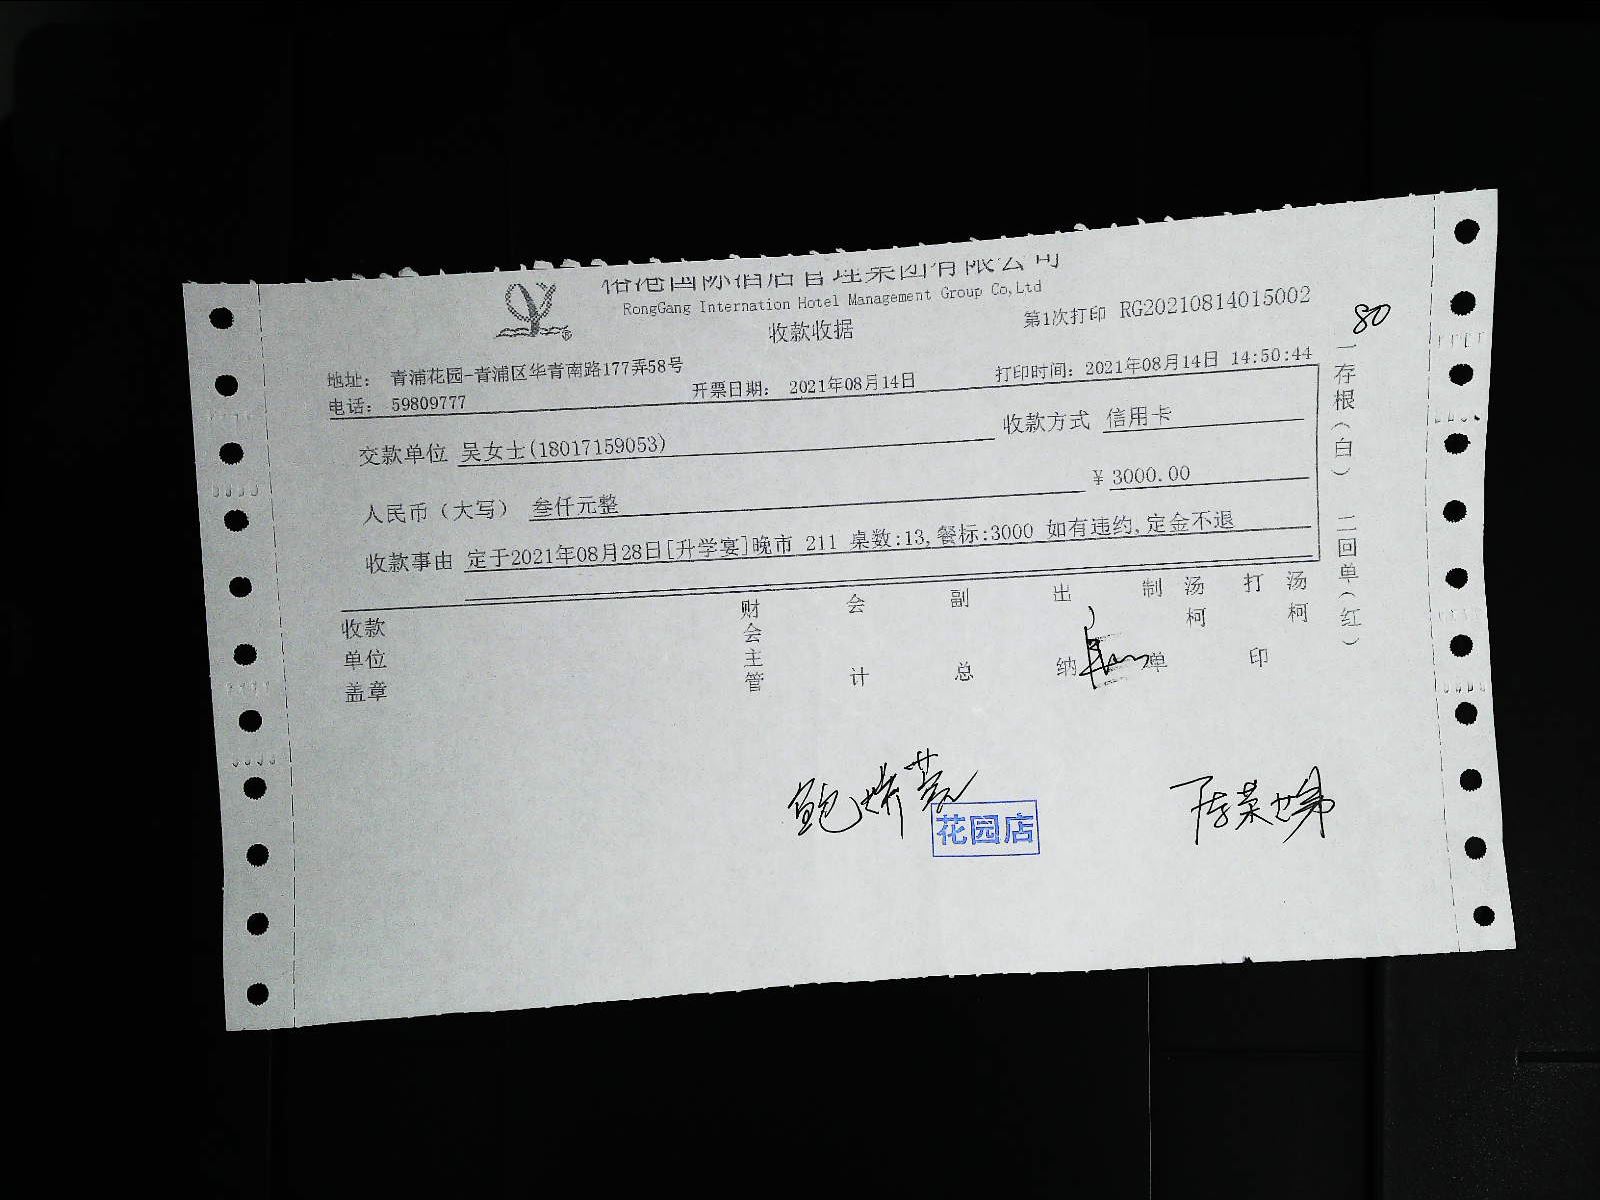 国际酒店管理集团有限公司
RongGang Internation Hotel Management Group Co,Ltd
收款收据
第1次打印 RG20210814015002
80
地址： 青浦花园-青浦区华青南路177弄58号
电话： 59809777
开票日期： 2021年08月14日
打印时间：2021年08月14日 14:50:44
交款单位 吴女士(18017159053)
收款方式 信用卡
人民币（大写） 叁仟元整
¥ 3000.00
收款事由 定于2021年08月28日[升学宴]晚市 211 桌数:13,餐标:3000 如有违约,定金不退
收款单位盖章
财会主管
会计
副总
出纳
制单
汤柯
打印
汤柯
一存根（白）
二回单（红）
花园店